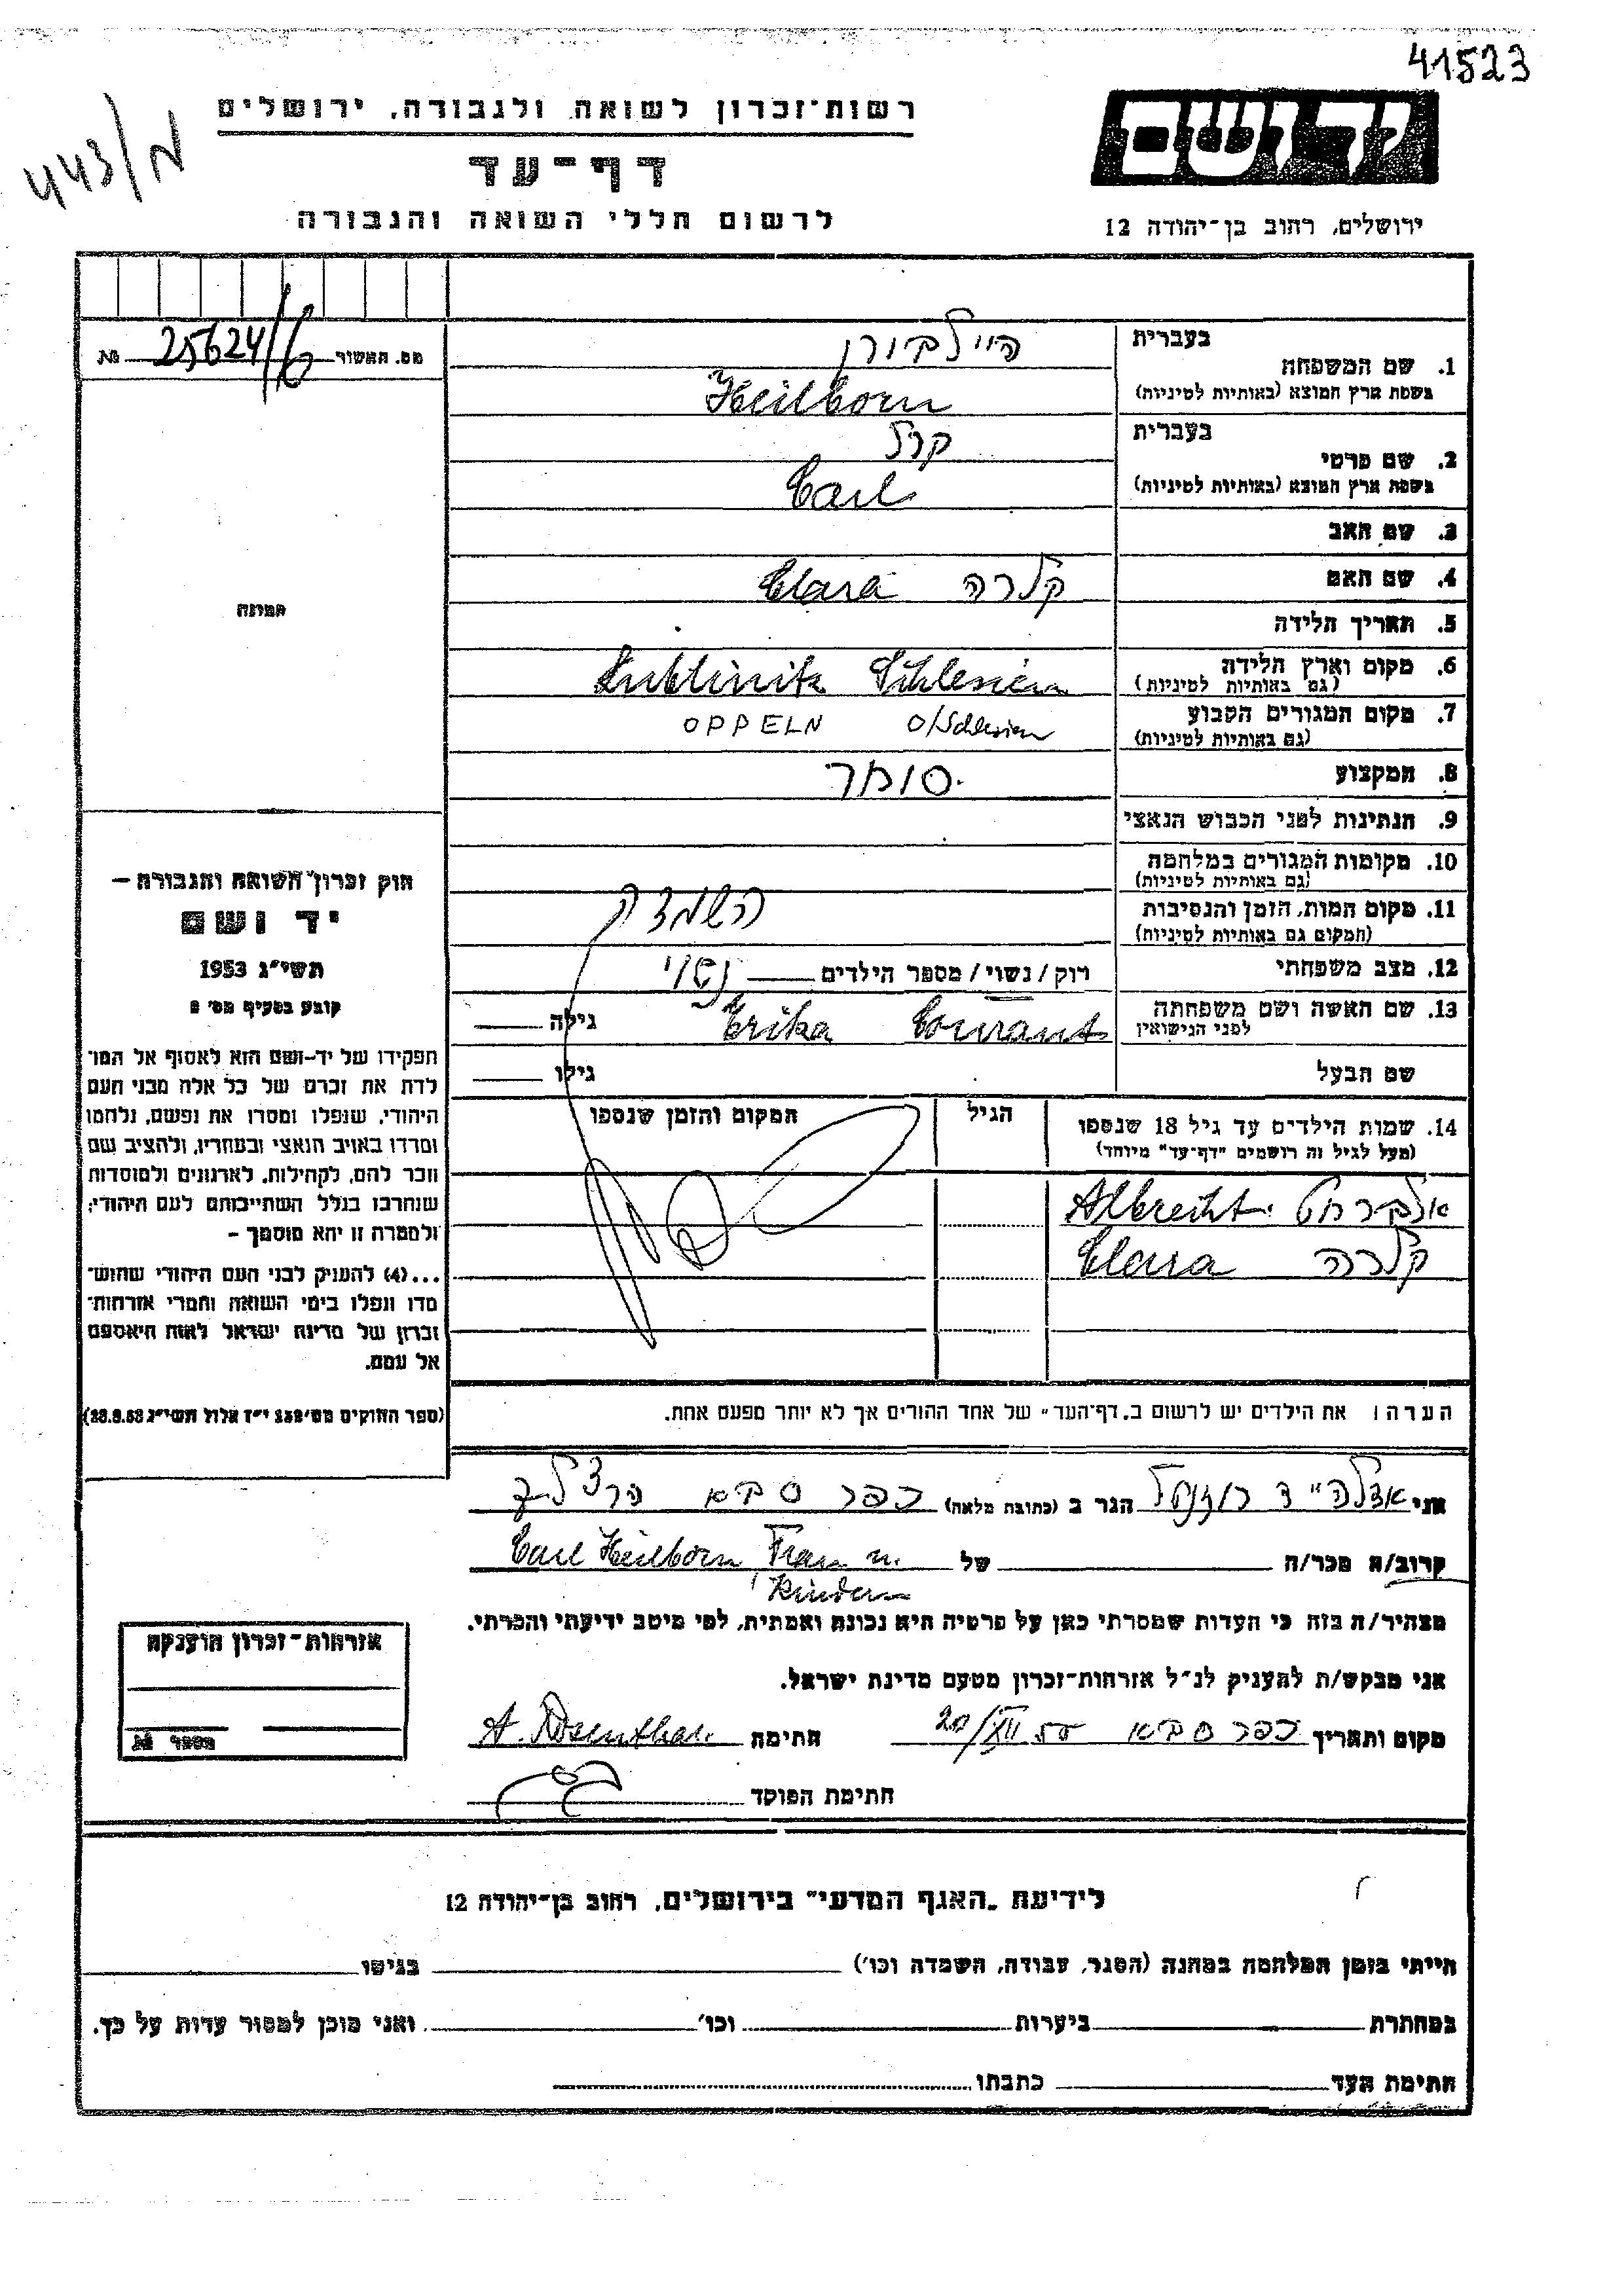 41523
443/מ
רשות־זכרון לשואה ולגבורה, ירושלים
דף־עד
לרשום חללי השואה והגבורה
יד ושם
ירושלים, רחוב בן־יהודה 12
מס. האשור № 25624/6
בעברית היילבורן
1. שם המשפחה
בשפת ארץ המוצא (באותיות לטיניות) Heilborn
בעברית קרל
2. שם פרטי
בשפת ארץ המוצא (באותיות לטיניות) Carl
3. שם האב
4. שם האם קלרה Clara
5. תאריך הלידה
6. מקום וארץ הלידה Lublinitz Schlesien
(גם באותיות לטיניות)
7. מקום המגורים הקבוע OPPELN O/Schlesien
(גם באותיות לטיניות)
8. המקצוע סוחר
9. הנתינות לפני הכבוש הנאצי
10. מקומות המגורים במלחמה
(גם באותיות לטיניות)
11. מקום המות, הזמן והנסיבות השמדה
(המקום גם באותיות לטיניות)
12. מצב משפחתי רוק/נשוי/מספר הילדים נשוי
13. שם האשה ושם משפחתה Erika Courant גילה
לפני הנישואין
שם הבעל גילו
14. שמות הילדים עד גיל 18 שנספו הגיל המקום והזמן שנספו
(מעל לגיל זה רושמים "דף־עד" מיוחד)
אלברחט Albrecht
קלרה Clara
הערה: את הילדים יש לרשום ב„דף־העד" של אחד ההורים אך לא יותר מפעם אחת.
תמונה
חוק זכרון השואה והגבורה –
יד ושם
תשי"ג 1953
קובע בסעיף מס' 2
תפקידו של יד־ושם הוא לאסוף אל המו־
לדת את זכרם של כל אלה מבני העם
היהודי, שנפלו ומסרו את נפשם, נלחמו
ומרדו באויב הנאצי ובעוזריו, ולהציב שם
וזכר להם, לקהילות, לארגונים ולמוסדות
שנחרבו בגלל השתייכותם לעם היהודי;
ולמטרה זו יהא מוסמך –
...(4) להעניק לבני העם היהודי שהוש־
מדו ונפלו בימי השואה והמרי אזרחות־
זכרון של מדינת ישראל לאות היאספם
אל עמם.
(ספר החוקים מס' 132 י"ז אלול תשי"ג 28.8.53)
אני רוזנטל הגר ב (כתובת מלאה) כפר סבא
קרוב/ה מכר/ה של Carl Heilborn, Frau u.
Kindern
מצהיר/ה בזה כי העדות שמסרתי כאן על פרטיה היא נכונה ואמתית, לפי מיטב ידיעתי והכרתי.
אני מבקש/ת להעניק לנ"ל אזרחות־זכרון מטעם מדינת ישראל.
מקום ותאריך כפר סבא 20/XII 55 חתימה A. Rosenthal
חתימת הפוקד
אזרחות־זכרון הוענקה
מספר №
לידיעת „האגף המדעי" בירושלים, רחוב בן־יהודה 12
הייתי בזמן המלחמה במחנה (הסגר, עבודה, השמדה וכו') בגיטו
במחתרת ביערות וכו' ואני מוכן למסור עדות על כך.
חתימת העד כתבתו